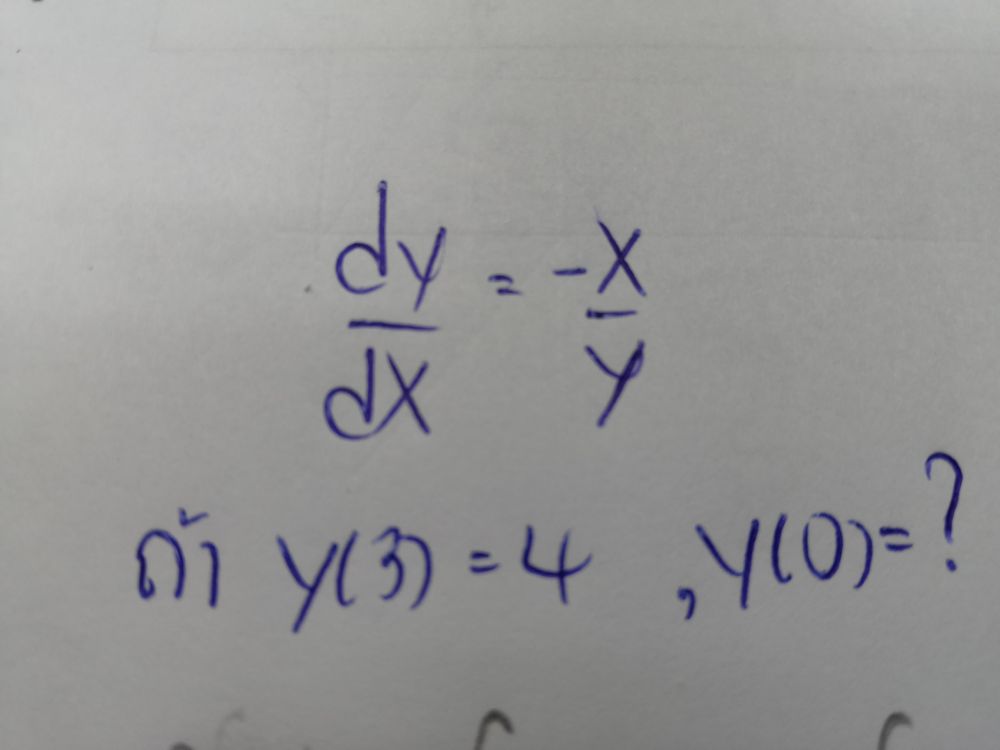 dy/dx = -x/y
ถ้า y(3) = 4 , y(0) = ?